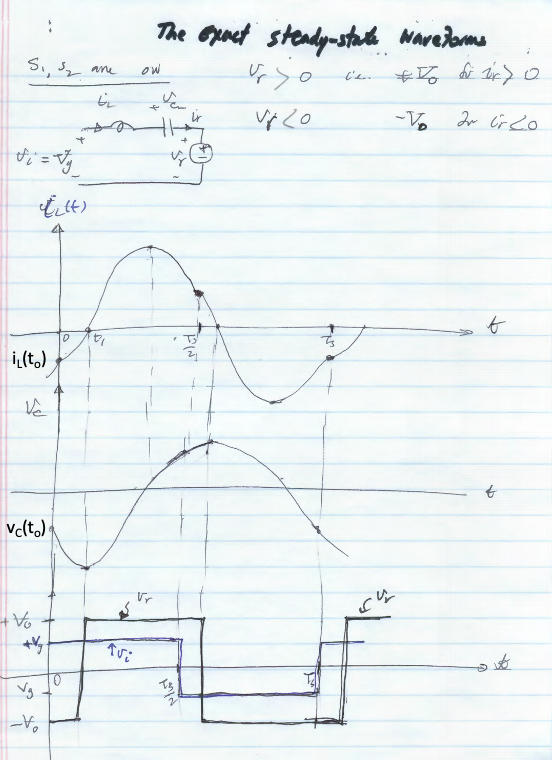 The exact steady-state Waveforms
S1, s2 are on
Vr > 0 i.e. +Vo for ir > 0
Vr < 0 -Vo for ir < 0
iL
+ Vc -
ir
+ +
vi = Vg
Vr
- -
iL(t)
0 t1 Ts/2 Ts t
iL(to)
Vc
t
vC(to)
+Vo
Vr
Vr
+Vg
vi
0 Ts/2 Ts t
Vg
-Vo